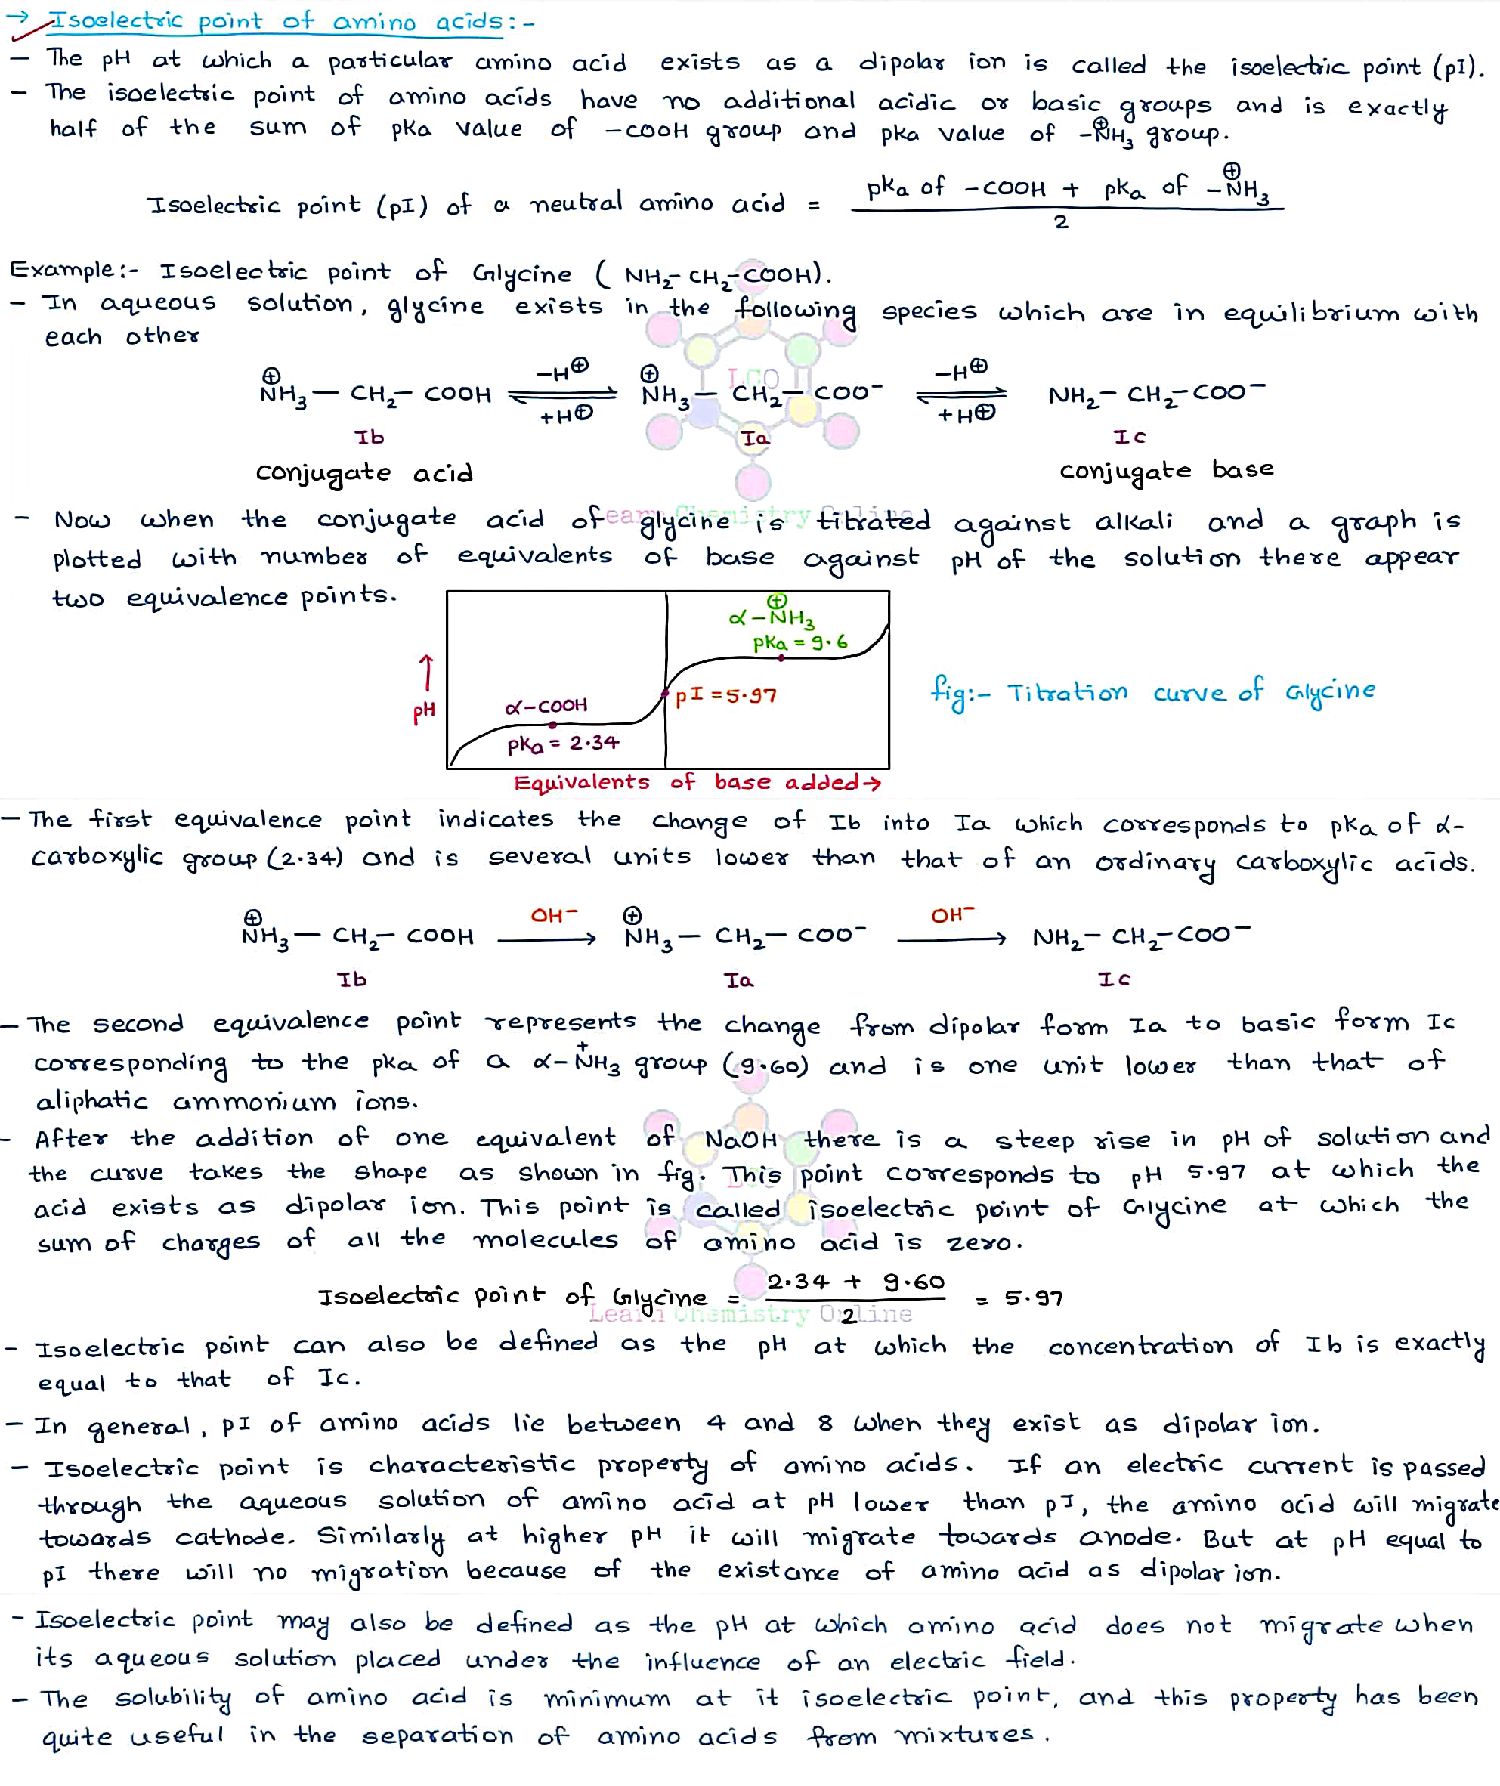 → Isoelectric point of amino acids:-
- The pH at which a particular amino acid exists as a dipolar ion is called the isoelectric point (pI).
- The isoelectric point of amino acids have no additional acidic or basic groups and is exactly
half of the sum of pka value of -COOH group and pka value of -N⊕H₃ group.
Isoelectric point (pI) of a neutral amino acid = (pka of -COOH + pka of -N⊕H₃) / 2
Example:- Isoelectric point of Glycine ( NH₂-CH₂-COOH).
- In aqueous solution, glycine exists in the following species which are in equilibrium with
each other
N⊕H₃ — CH₂ — COOH ⇌ (-H⊕ / +H⊕) N⊕H₃ — CH₂ — COO⁻ ⇌ (-H⊕ / +H⊕) NH₂ — CH₂ — COO⁻
LCO
Ib Ia Ic
conjugate acid conjugate base
Learn Chemistry Online
- Now when the conjugate acid of glycine is titrated against alkali and a graph is
plotted with number of equivalents of base against pH of the solution there appear
two equivalence points.
α-N⊕H₃
pKa = 9.6
↑
pH
α-COOH
pKa = 2.34
pI = 5.97
fig:- Titration curve of Glycine
Equivalents of base added →
- The first equivalence point indicates the change of Ib into Ia which corresponds to pka of α-
carboxylic group (2.34) and is several units lower than that of an ordinary carboxylic acids.
N⊕H₃ — CH₂ — COOH —OH⁻→ N⊕H₃ — CH₂ — COO⁻ —OH⁻→ NH₂ — CH₂ — COO⁻
Ib Ia Ic
- The second equivalence point represents the change from dipolar form Ia to basic form Ic
corresponding to the pka of a α-N⁺H₃ group (9.60) and is one unit lower than that of
aliphatic ammonium ions.
- After the addition of one equivalent of NaOH there is a steep rise in pH of solution and
the curve takes the shape as shown in fig. This point corresponds to pH 5.97 at which the
acid exists as dipolar ion. This point is called isoelectric point of Glycine at which the
sum of charges of all the molecules of amino acid is zero.
Isoelectric point of Glycine = (2.34 + 9.60) / 2 = 5.97
Learn Chemistry Online
- Isoelectric point can also be defined as the pH at which the concentration of Ib is exactly
equal to that of Ic.
- In general, pI of amino acids lie between 4 and 8 when they exist as dipolar ion.
- Isoelectric point is characteristic property of amino acids. If an electric current is passed
through the aqueous solution of amino acid at pH lower than pI, the amino acid will migrate
towards cathode. Similarly at higher pH it will migrate towards anode. But at pH equal to
pI there will no migration because of the existance of amino acid as dipolar ion.
- Isoelectric point may also be defined as the pH at which amino acid does not migrate when
its aqueous solution placed under the influence of an electric field.
- The solubility of amino acid is minimum at it isoelectric point, and this property has been
quite useful in the separation of amino acids from mixtures.